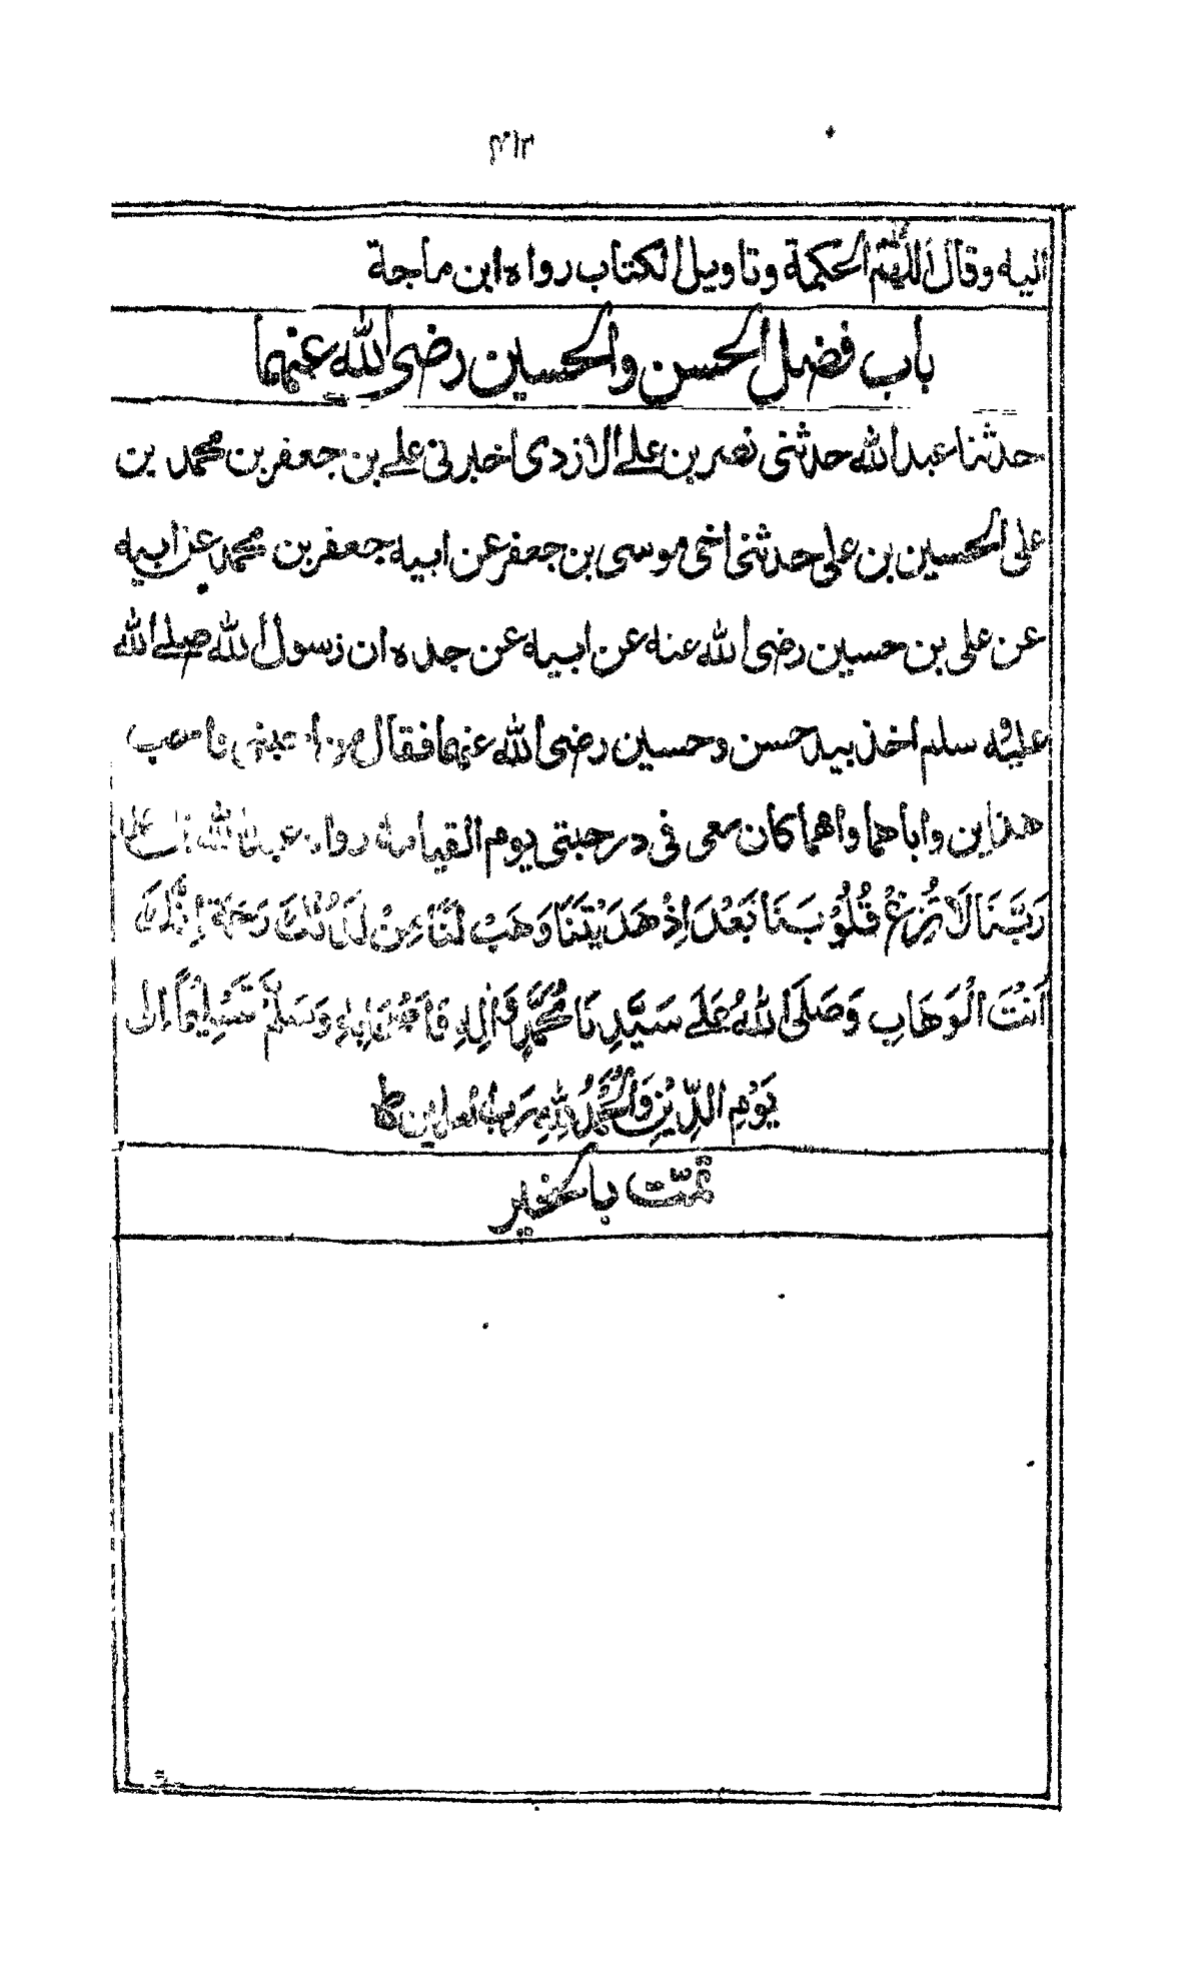 اليه وقال اللهم الحكمة وتاويل الكتاب رواه ابن ماجة
باب فضل الحسن والحسين رضى الله عنهما
حدثنا عبد الله حدثنى نصر بن على الازدى اخبرنى على بن جعفر بن محمد بن
على الحسين بن على حدثنى اخى موسى بن جعفر عن ابيه جعفر بن محمد عن ابيه
عن على بن حسين رضى الله عنه عن ابيه عن جده ان رسول الله صلى الله
عليه وسلم اخذ بيد حسن وحسين رضى الله عنهما فقال من احبنى واحب
هذاين واباهما وامهما كان معى فى درجتى يوم القيامة رواه عبد الله
رَبَّنَا لَا تُزِغْ قُلُوْبَنَا بَعْدَ اِذْ هَدَيْتَنَا وَهَبْ لَنَا مِنْ لَدُنْكَ رَحْمَة اِنَّكَ
اَنْتَ الْوَهَاب وَصَلَى اللهُ عَلَے سَيَّدِنَا مُحَمَّدٍ وَاٰلِهِ وَاَصْحَابِهِ وَسَلَّمْ تَسْلِيْمًا اِلى
يَوْمِ الدِّيْنِ وَالْحَمْدُ لِلهِ رَبِ العلمين
تمّت بالخير